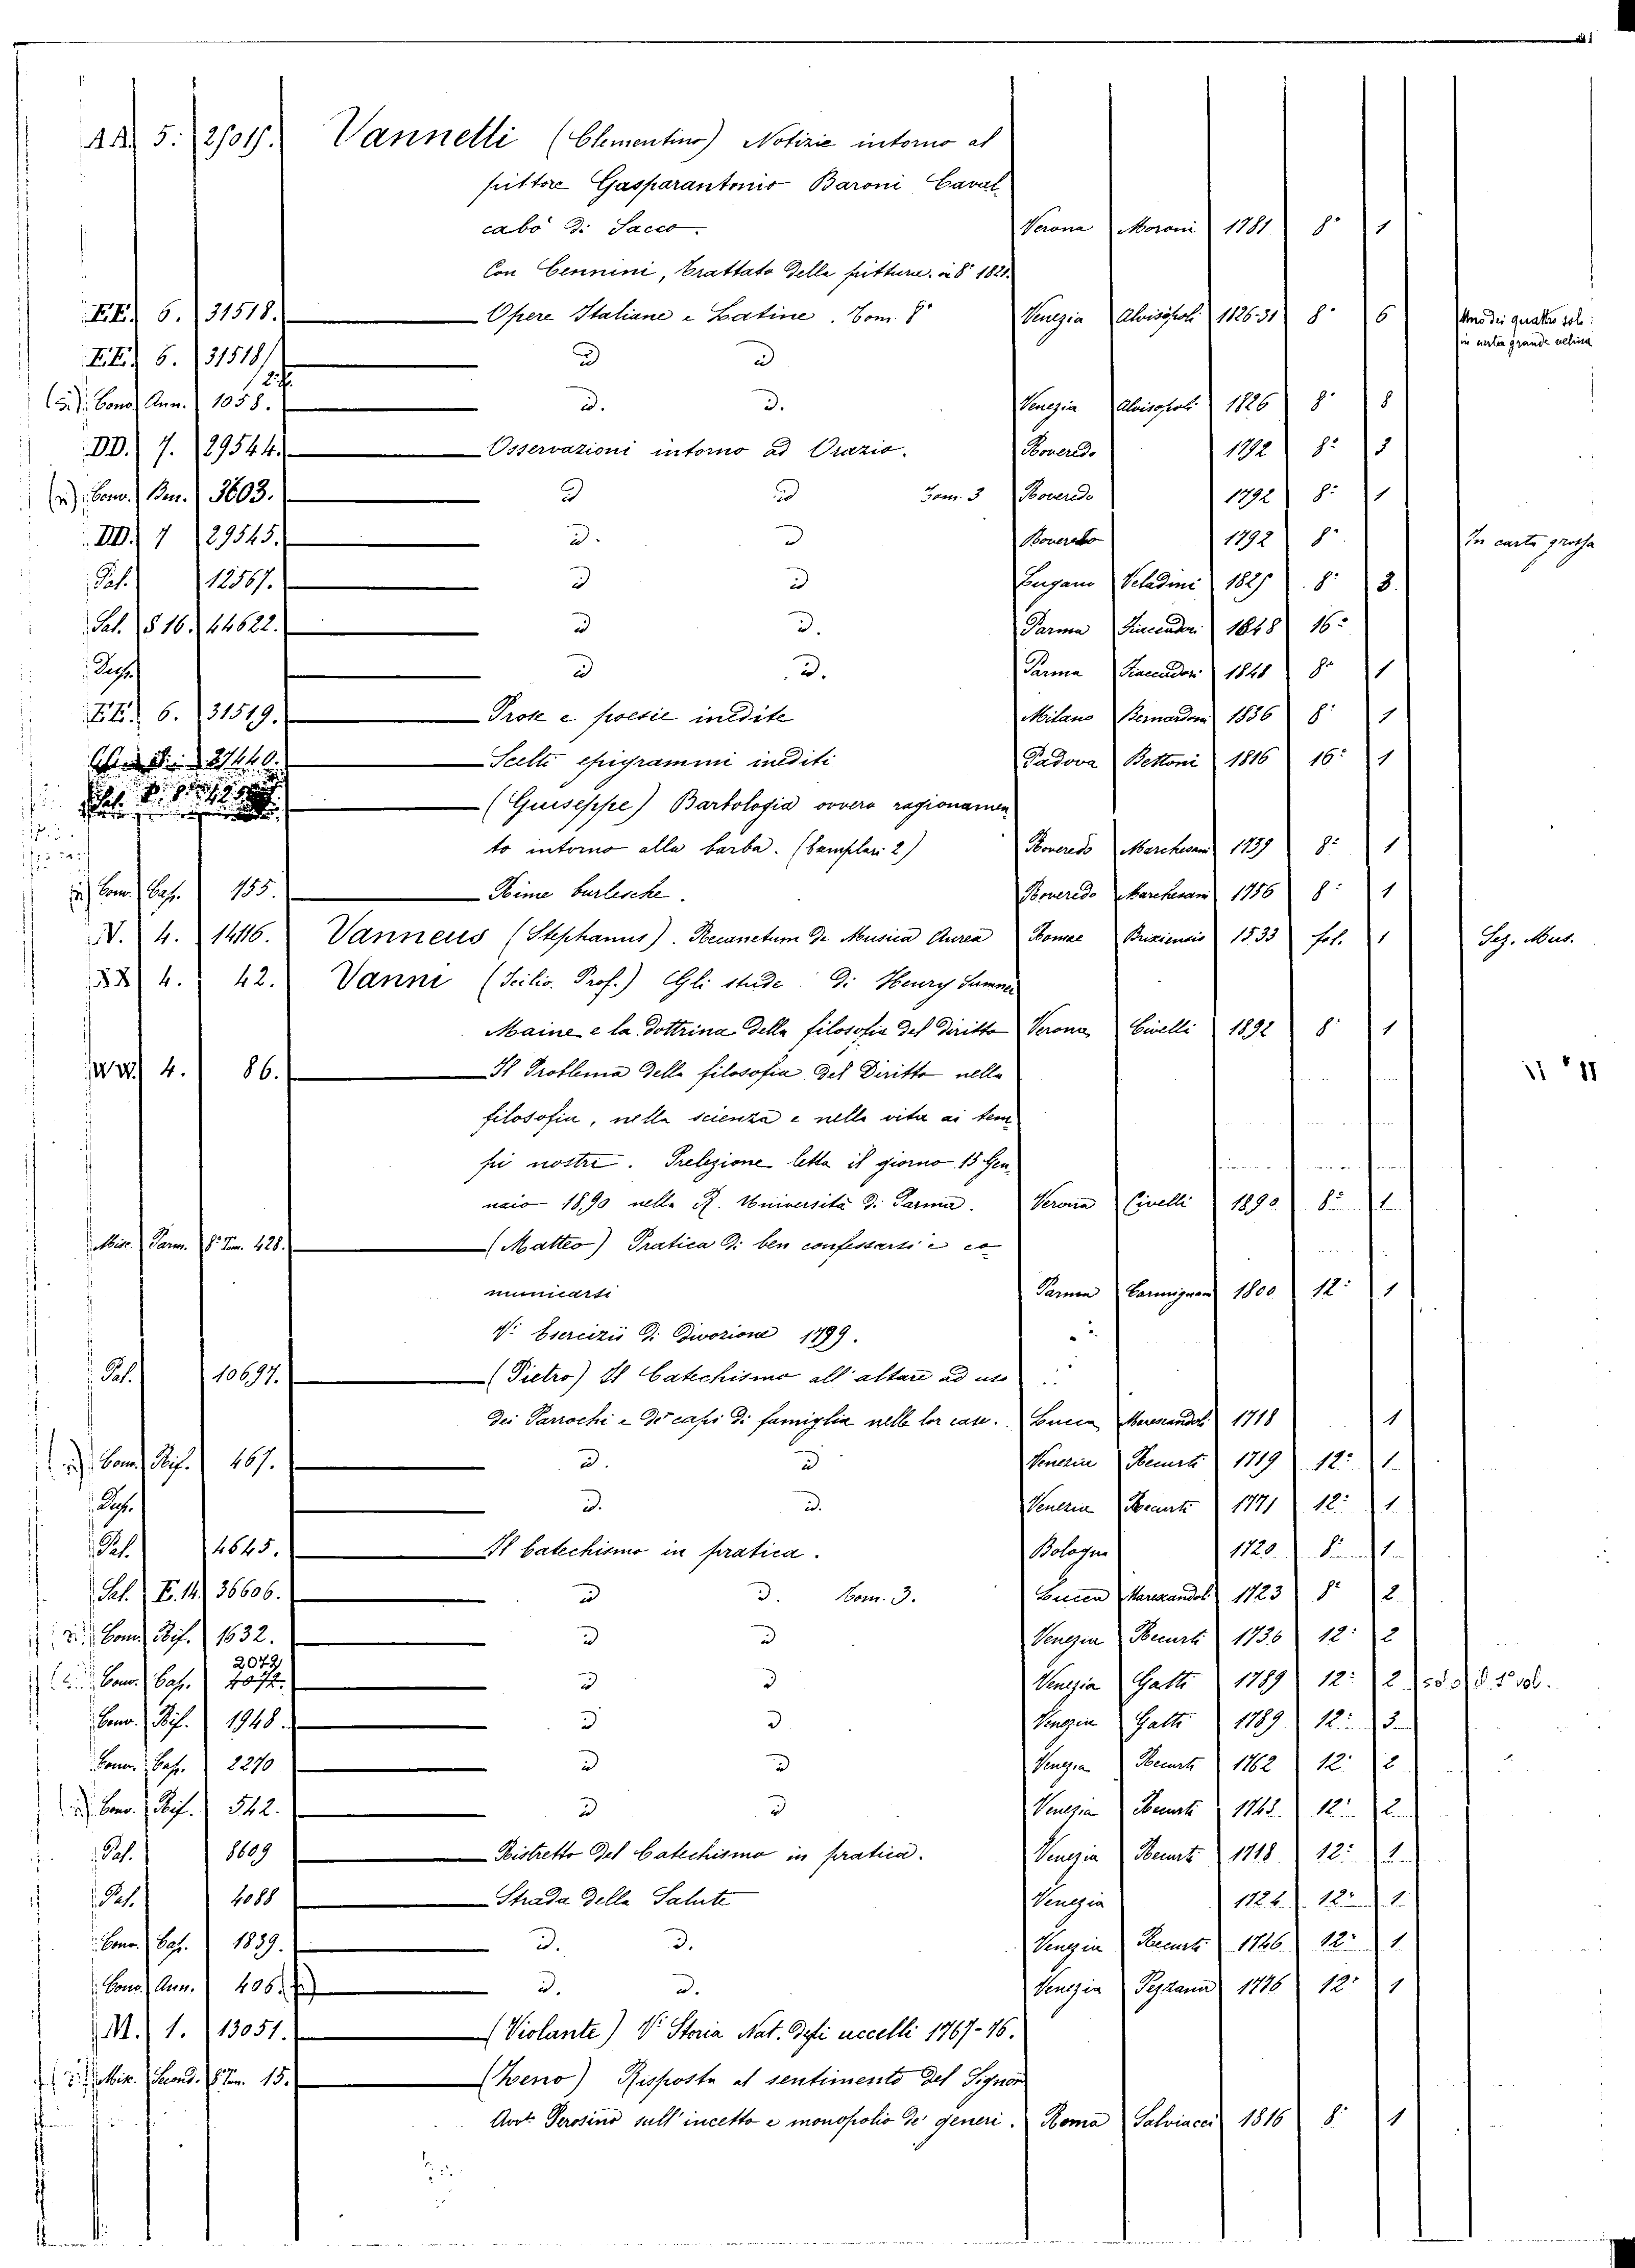 AA. 5. Vannetti (Clementino) Notizie intorno al
pittore Gasparantonio Baroni Caval
cabò di Sacco. Verona Moroni 1781 8° 1
Con Cennini, Trattato della pittura. in 8° 1821.
EE. 6. 31518. Opere Italiane e Latine. Tom. 8° Venezia Alvisopoli 1826-31 8° 6 Uno dei quattro soli
in carta grande velina
EE. 6. 31518/2. d d
Conv. Ann. 1058. d. d. Venezia Alvisopoli 1826 8° 8
DD. 7. 29544. Osservazioni intorno ad Orazio. Roveredo 1792 8° 3
Conv. Ben. 3603. d d Tom. 3 Roveredo 1792 8° 1
DD. 7 29545. d. d Rovereto 1792 8° In carta grossa
Pal. 12567. d d Lugano Veladini 1825 8° 3.
Sal. § 16. 44622. d d. Parma Fiaccadori 1848 16°
Dup. d d. Parma Fiaccadori 1848 8° 1
EE. 6. 31519. Prose e poesie inedite Milano Bernardoni 1836 8° 1
Scelti epigrammi inediti Padova Bettoni 1816 16° 1
(Guiseppe) Barbologia ovvero ragionamen
to intorno alla barba. (Esemplari 2) Roveredo Marchesani 1759 8° 1
Conv. Cap. 155. Rime burlesche. Roveredo Marchesani 1756 8° 1
V. 4. 14116. Vanneus (Stephanus). Recanetum de Musica Aurea Romae Brixiensis 1533 fol. 1 Sez. Mus.
4. 42. Vanni (Icilio. Prof.) Gli studi di Henry Sumner
Maine e la dottrina della filosofia del diritto Verona Civelli 1892 8° 1
WW. 4. 86. Il Problema della filosofia del Diritto nella
filosofia, nella scienza e nella vita ai tem
pi nostri. Prelezione letta il giorno 15 Gen
naio 1890 nella R. Università di Parma. Verona Civelli 1890 8° 1
Misc. Parm. 8° Tom. 428. (Matteo) Pratica di ben confessarsi e co
municarsi Parma Carmignani 1800 12° 1
V. Esercizii di Divozione 1799.
Pal. 10697. (Pietro) Il Catechismo all'altare ad uso
dei Parrochi e de' capi di famiglia nelle lor case. Lucca Marescandoli 1718 1
Conv. Rif. 467. d. d Venezia Recurti 1719 12° 1
Dup. d. d. Venezia Recurti 1771 12° 1
Pal. 4645. Il Catechismo in pratica. Bologna 1720 8° 1
Sal. E. 14. 36606. d d. Tom. 3. Lucca Marescandoli 1723 8° 2
Conv. Rif. 1632. d d Venezia Recurti 1736 12° 2
Conv. Cap. 2072 d d Venezia Gatti 1789 12° 2
Conv. Rif. 1948. d d Venezia Gatti 1789 12° 3
Conv. Cap. 2270 d d Venezia Recurti 1762 12° 2
Conv. Rif. 542. d d Venezia Recurti 12° 2
Pal. 8609 Ristretto del Catechismo in pratica. Venezia Recurti 1718 12° 1
Pal. 4088 Strada della Salute Venezia 12° 1
Conv. Cap. 1839. d. d. Venezia Recurti 1746 12° 1
Conv. Ann. d. d. Venezia Pezzana 1776 12° 1
M. 1. 13051. (Violante) V. Storia Nat. degli uccelli 1767-76.
Misc. Second. 8° Tom. 15. (Zeno) Risposta al sentimento del Signor
Avv. Perosino sull'incetto e monopolio de' generi. Roma Salviucci 1816 8° 1